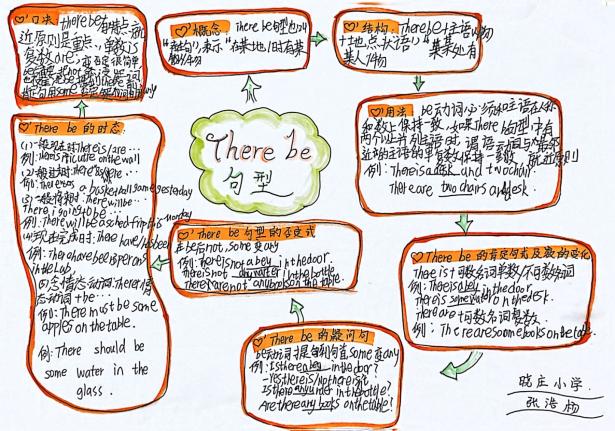 There be
句型
口诀
there be有特点,就
近原则是重点,单数is
复数are,
概念
There be句型也叫
"存在句",表示"在某地/时有某
物/人"
结构
There be+主语+人/物
+地点状语,"某某处有
某人/物
用法
be动词必须和主语在人称
和数上保持一致,如果There be句型中有
两个以上并列主语时,谓语动词与最邻
近的主语的单复数保持一致,就近原则
例:There is a desk and two chair
There are two chairs and desk.
There be的肯定句式及数的变化
There is+可数名词单数/不可数名词
例:There is a boy in the door.
there is some water on the desk.
There are+可数名词复数
例:There are some books on the table.
There be的疑问句
be动词提前到句首,some变any
例:Is there a boy in the door?
Yes there is/No there isn't
Is there any water in the bottle?
Are there any books on the table?
There be句型的否定式
在be后not,some变any
例:There is not a boy in the door.
there is not any water in the bottle
there are not any books on the table.
There be的时态:
(1)一般现在时:there is/are…
例:There is picture on the wall
(2)一般过去时:
例:there was a basketball some yesterday
(3)一般将来时:there will be…
There is going to be…
例:There will be a sched trip this monday
(4)现在完成时:there have/has been
例:There have been persons
in the lab.
(5)含情态动词:There+情
态动词+be…
例:There must be some
apples on the table.
例:There should be
some water in the
glass.
晓庄小学
张浩杨